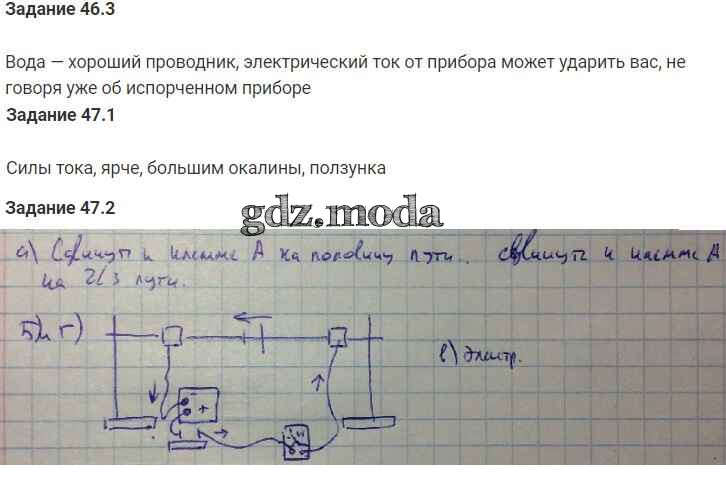 Задание 46.3
Вода — хороший проводник, электрический ток от прибора может ударить вас, не
говоря уже об испорченном приборе
Задание 47.1
Силы тока, ярче, большим окалины, ползунка
Задание 47.2
gdz.moda
а) Сдвинуть к клемме А на половину пути. Сдвинуть к клемме А
на 2/3 пути.
Б) и г)
в) Электр.
- +